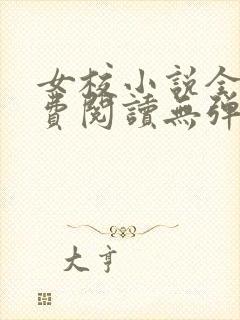 女校小说全
費閱讀無彈
大亨